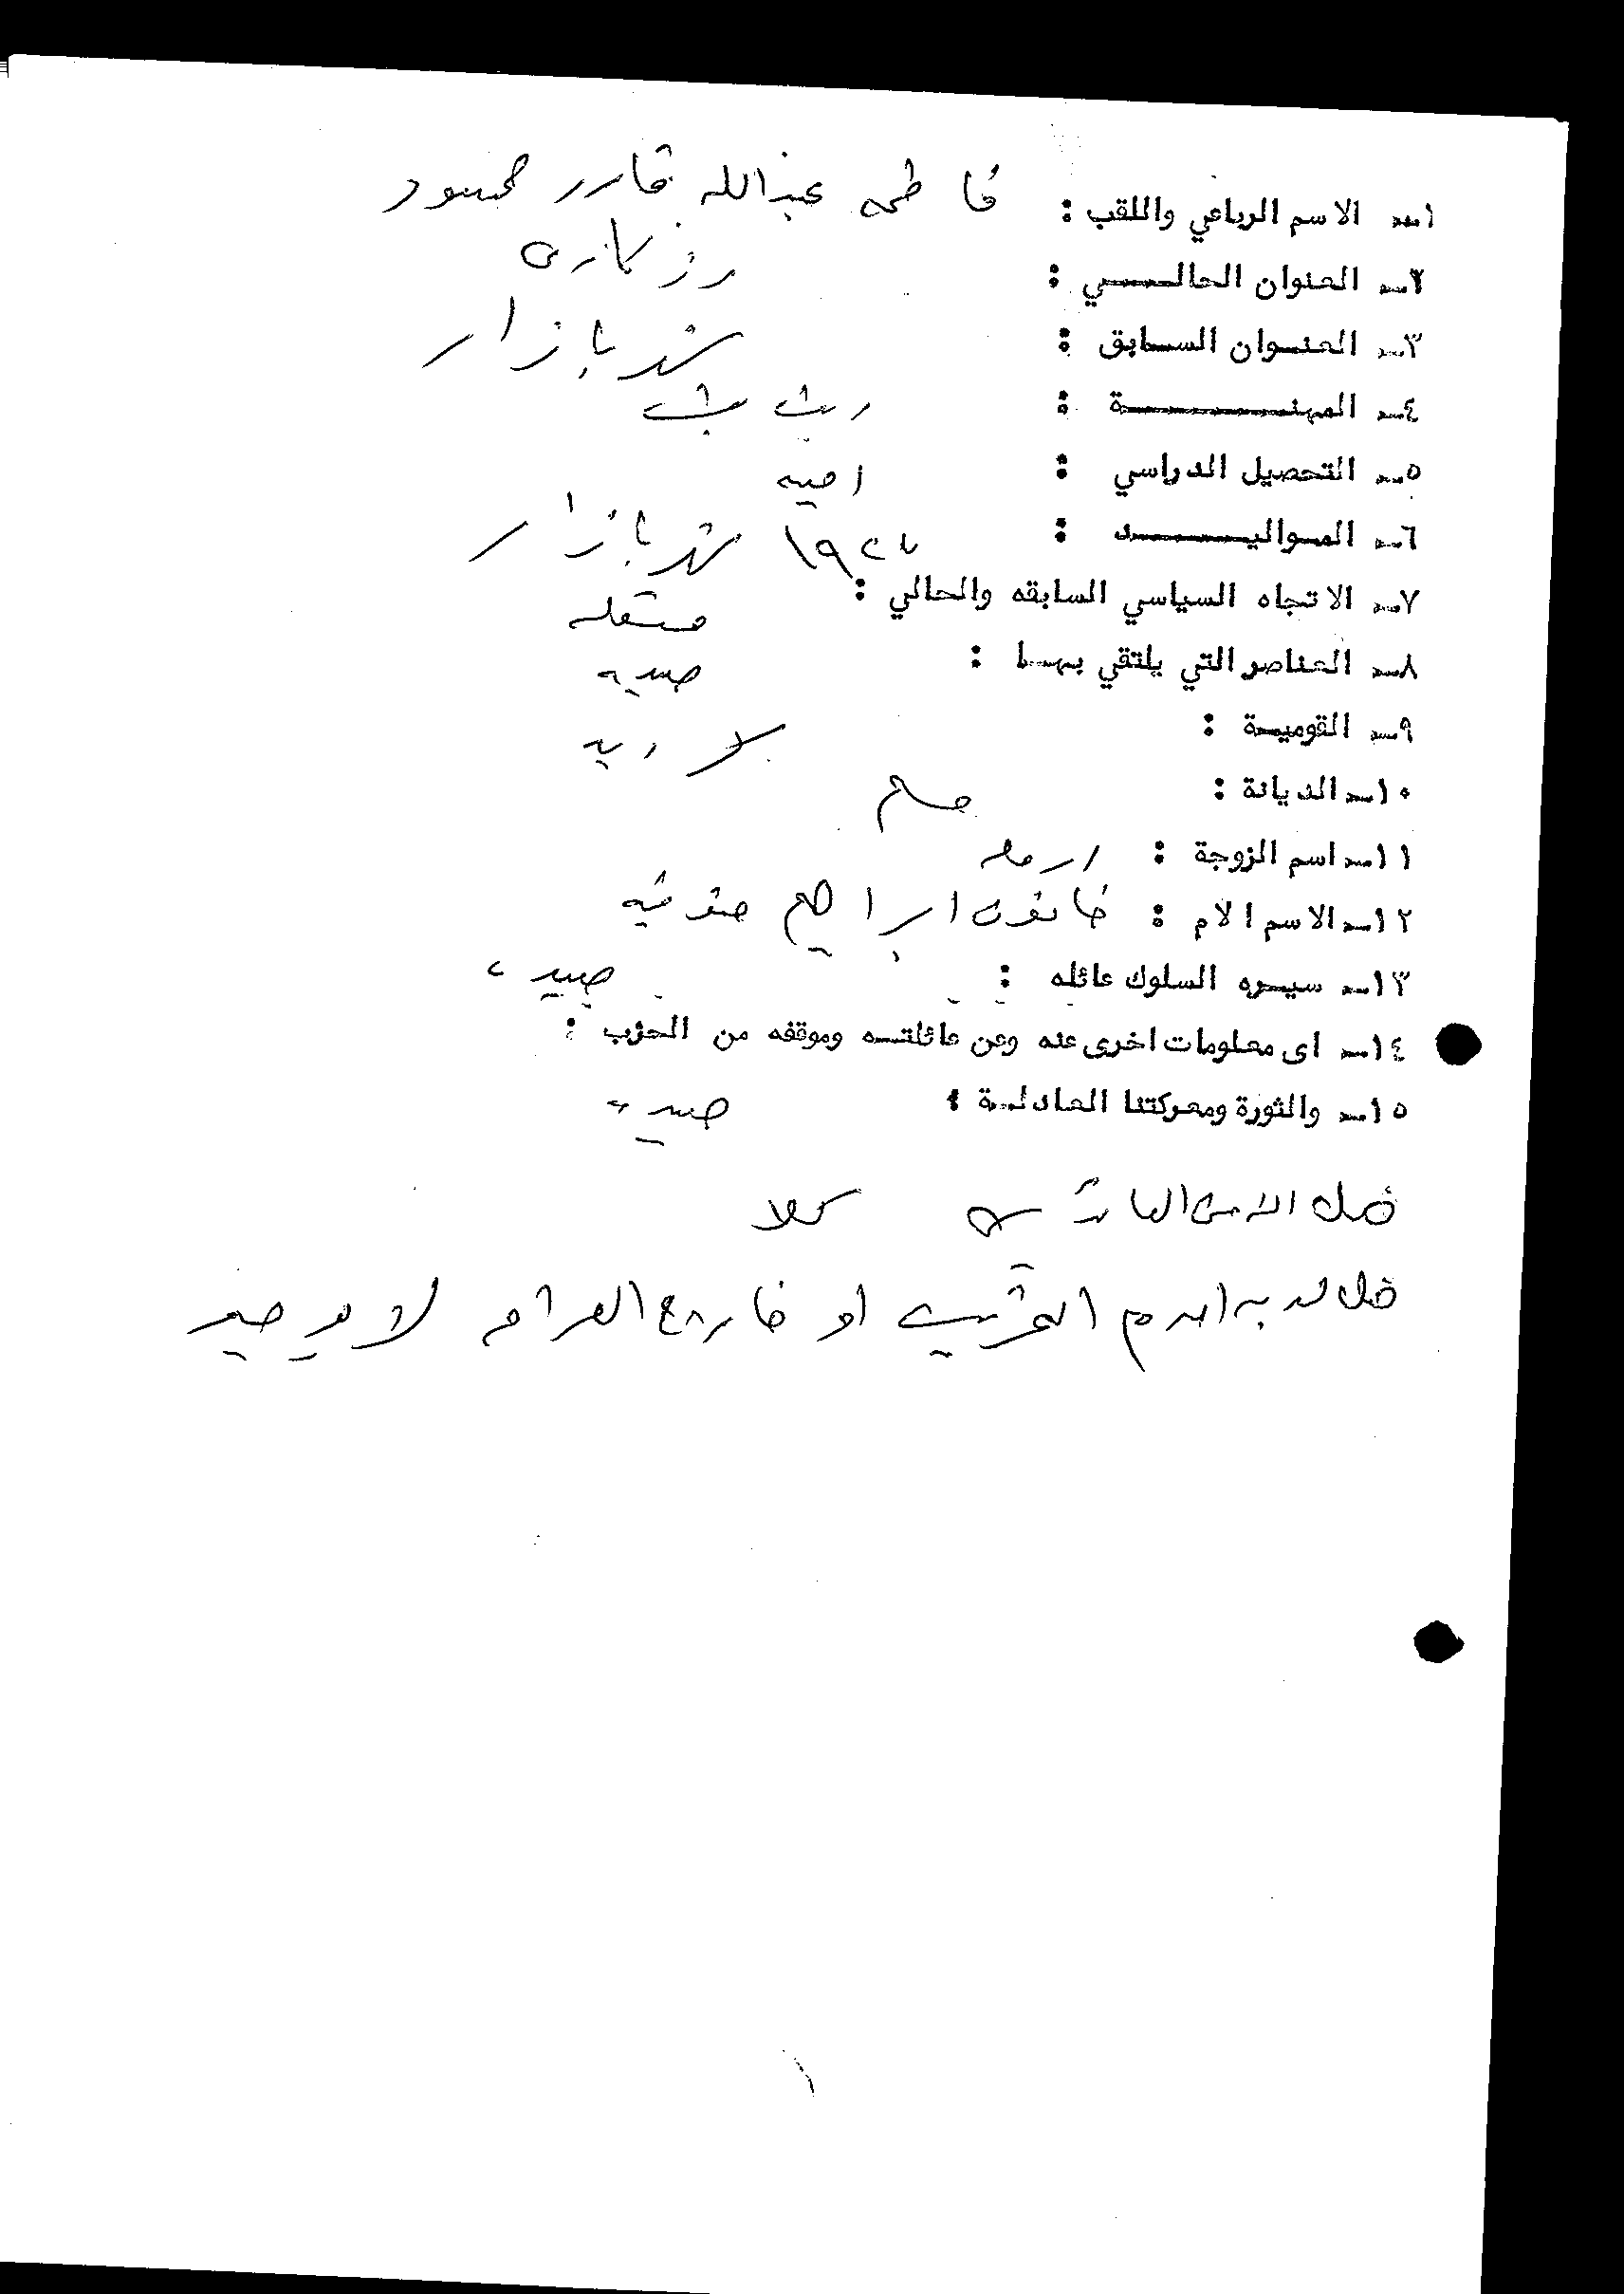 ١ـ الاسم الرباعي واللقب : فاطمه عبدالله قادر محمود
٢ـ العنوان الحالـــي : رزكاري
٣ـ العنـوان السـابق : شهربازار
٤ـ المهنــــــة : ربت بيت
٥ـ التحصيل الدراسي : اميه
٦ـ المـواليـــــد : شهربازار
٧ـ الاتجاه السياسي السابقه والحالي : مستقله
٨ـ العناصر التي يلتقي بهـا : جيده
٩ـ القوميـة : كرديه
١٠ـ الديانة : مسلم
١١ـ اسم الزوجة : ارمله
١٢ـ الاسم الام : خاتون ابراهيم
١٣ـ سيـره السلوك عائله : جيده
١٤ـ اى معلومات اخرى عنه وعن عائلتـه وموقفه من الحزب :
١٥ـ والثورة ومعركتنا العادلـة : جيده
كلا
هل لديه او خارج العراق لا يوجد